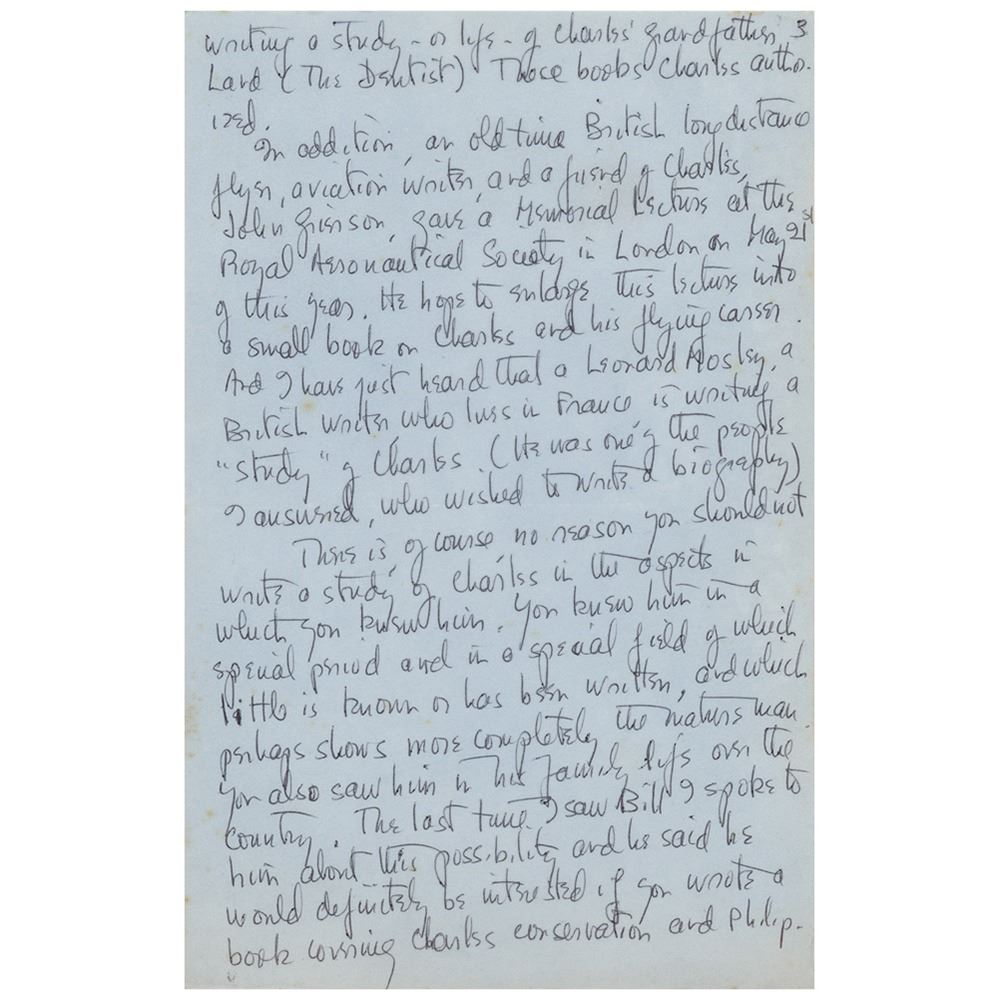 writing a study - or life - of Charles' grandfather, 3
Land (The Dentist) Those books Charles author-
ized.
In addition, an old time British long distance
flyer, aviation writer, and a friend of Charles,
John Grierson, gave a Memorial Lecture at the
Royal Aeronautical Society in London on May 21st
of this year. He hopes to enlarge this lecture into
a small book on Charles and his flying career.
And I have just heard that a Leonard Mosley, a
British writer who lives in France is writing a
"study" of Charles. (He was one of the people
I answered, who wished to write a biography)
There is, of course no reason you should not
write a study of Charles in the aspects in
which you knew him. You knew him in a
special period and in a special field of which
little is known or has been written, and which
perhaps shows more completely the mature man.
You also saw him in his family life over the
country. The last time I saw Bill I spoke to
him about this possibility and he said he
would definitely be interested if you wrote a
book covering Charles conservation and Philip-